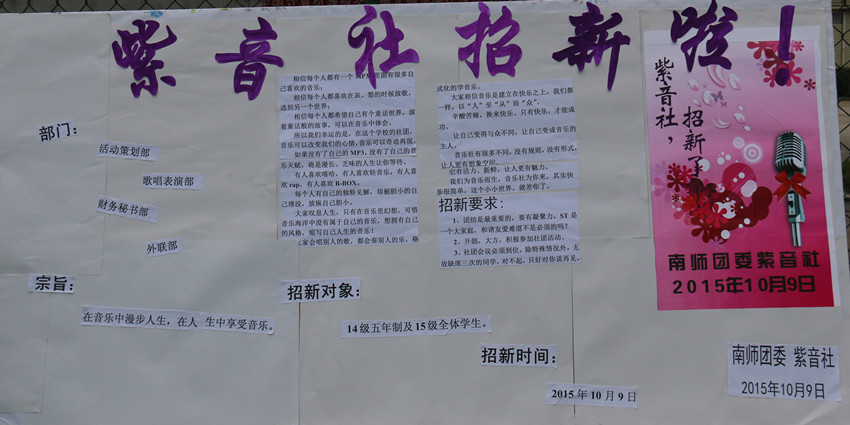 紫音社招新啦！
部门：
活动策划部
歌唱表演部
财务秘书部
外联部
宗旨：
在音乐中漫步人生，在人 生中享受音乐。
相信每个人都有一个MP3，里面有很多自
己喜欢的音乐；
相信每个人都喜欢在哀、怒的时候放歌，
逃到另一个世界；
相信每个人都希望自己有个童话世界，演
着童话般的故事，可以在音乐中体会。
所以我们幸运的是，在这个学校的社团，
音乐可以改变我们的心情，音乐可以奇迹再现。
如果没有了自己的MP3，没有了自己的音
乐天赋，将是漫长、乏味的人生让你等待。
有人喜欢嘻哈，有人喜欢轻音乐，有人喜
欢rap，有人喜欢B-BOX。
每个人有自己的独特见解，却被胆小的自
己埋没，放纵自己胆小。
大家叹息人生，只有在音乐里幻想，可惜
音乐海洋中没有属于自己的音乐，想拥有自己
的风格，缩写自己人生的音乐！
大家会唱别人的歌，都会奏别人的乐，格
式化的学音乐。
大家相信音乐是建立在快乐之上，我们都
一样，以“人”至“从”而“众”。
辛酸苦辣，换来快乐，只有快乐，才能成
功。
让自己变得与众不同，让自己变成音乐的
主人。
音乐社有很多不同，没有规则，没有形式，
让人更有想象空间。
它有活力，新鲜，让人更有魅力。
我们为音乐而生，音乐社为你来，其实快
乐很简单，这个小小世界，就差你了。
招新要求：
1、团结是最重要的，要有凝聚力，ST是
一个大家庭，和谐友爱难道不是必须的吗？
2、开朗，大方，积极参加社团活动。
3、社团会议必须到位，除特殊情况外，无
故缺席三次的同学，对不起，只好对你说再见。
招新对象：
14级五年制及15级全体学生。
招新时间：
2015年10月9日
紫音社，
招新了
南师团委紫音社
2015年10月9日
南师团委 紫音社
2015年10月9日